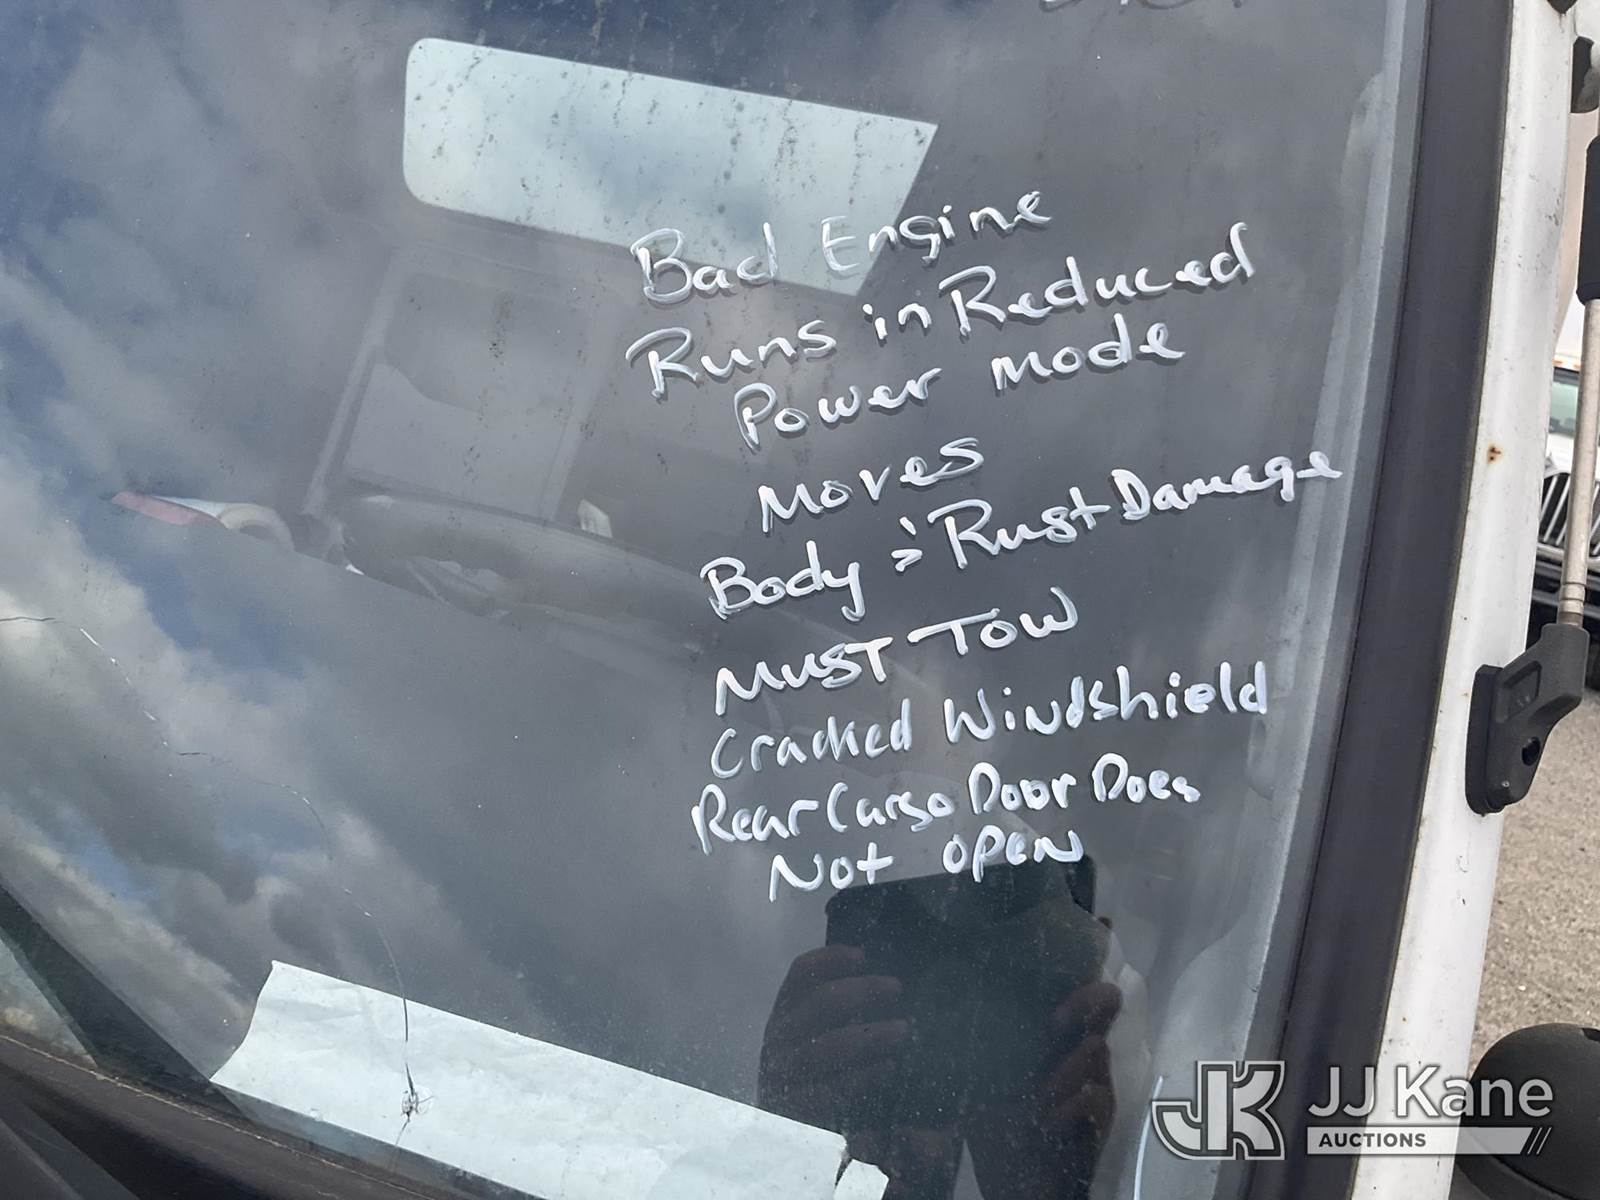 Bad Engine
Runs in Reduced
Power mode
Moves
Body > Rust Damage
Must Tow
Cracked Windshield
Rear Cargo Door Does
Not open
JJ Kane
AUCTIONS